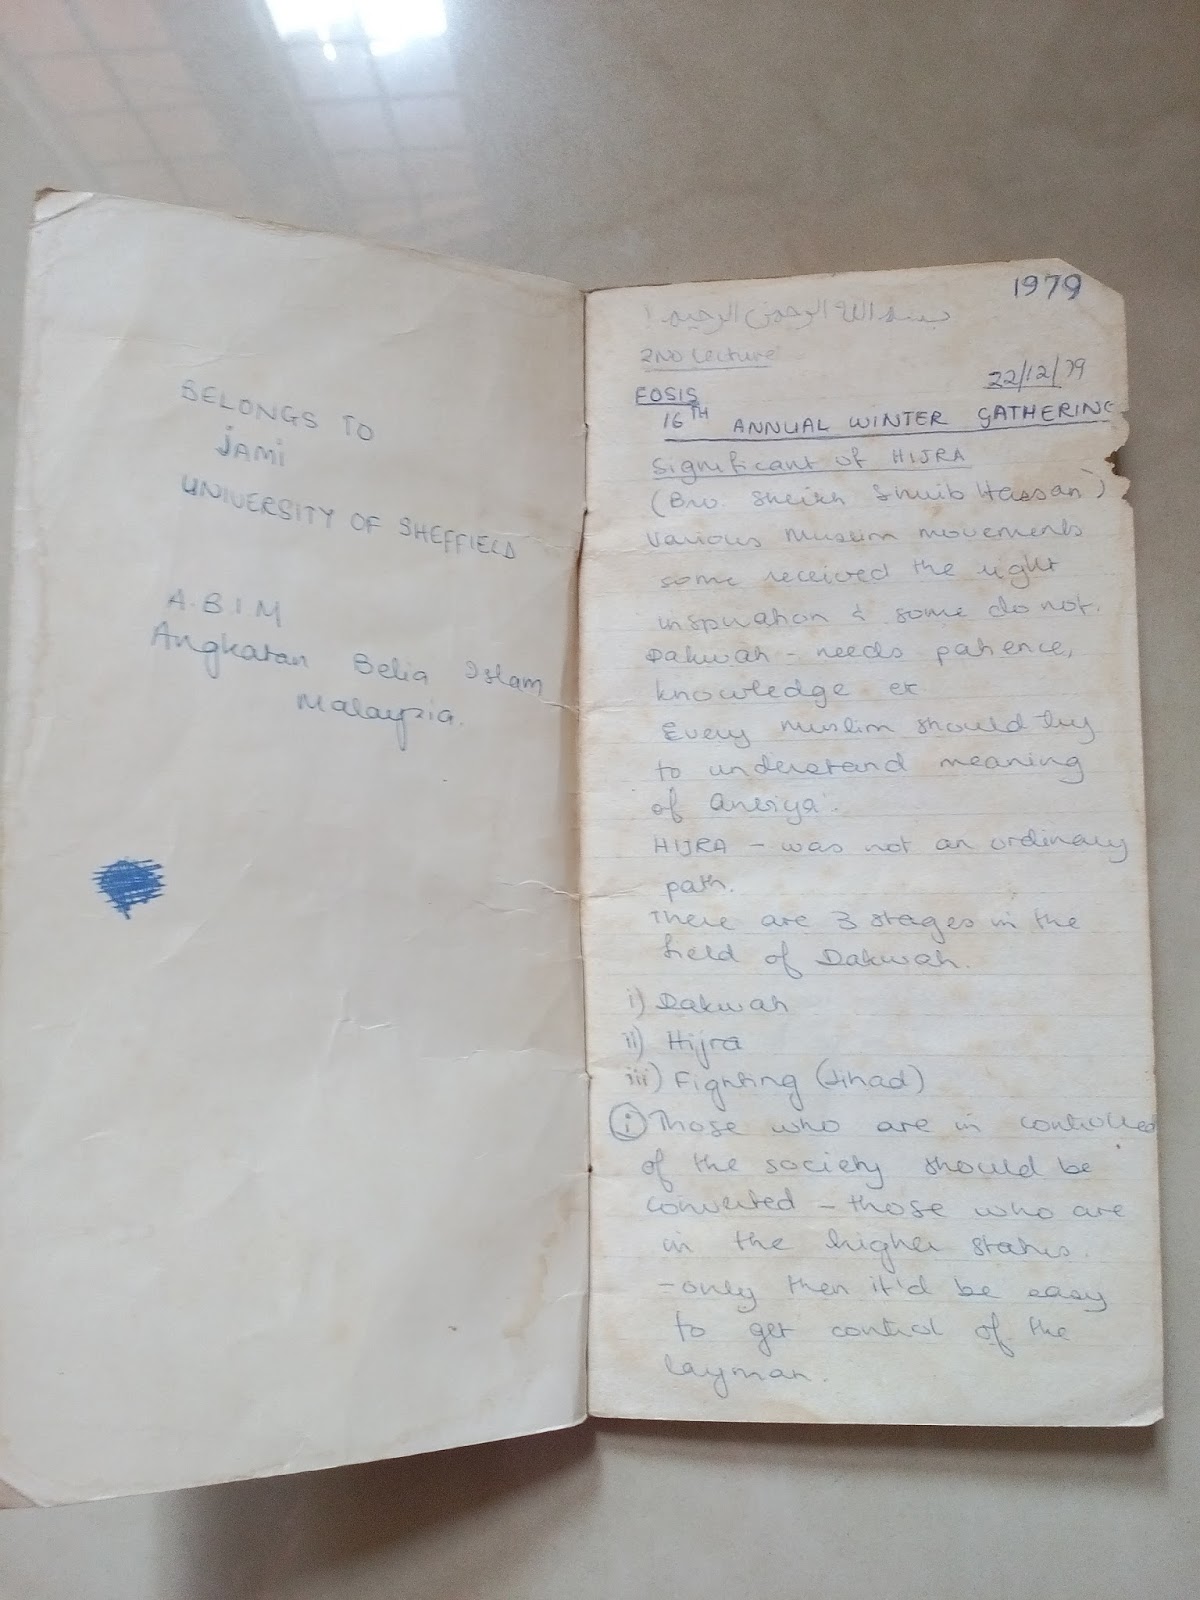 BELONGS TO
JAMI
UNIVERSITY OF SHEFFIELD
A.B.I.M
Angkatan Belia Islam
Malaysia.
1979
بسم الله الرحمن الرحيم !
2ND Lecture
22/12/79
FOSIS
16TH ANNUAL WINTER GATHERING
Significant of HIJRA
(Bro. Sheikh Shuib Hassan)
Various Muslim movements
some received the right
inspiration & some do not.
Dakwah - needs patience,
knowledge etc
Every Muslim should try
to understand meaning
of anbiya'.
HIJRA - was not an ordinary
path.
There are 3 stages in the
field of Dakwah.
i) Dakwah
ii) Hijra
iii) Fighting (Jihad)
i Those who are in controlled
of the society should be
converted - those who are
in the higher status.
- only then it'd be easy
to get control of the
layman.